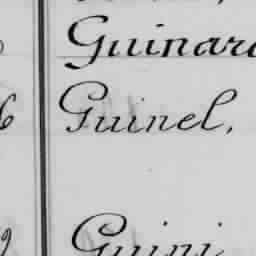 Guinard
6 Guinel,
Guini